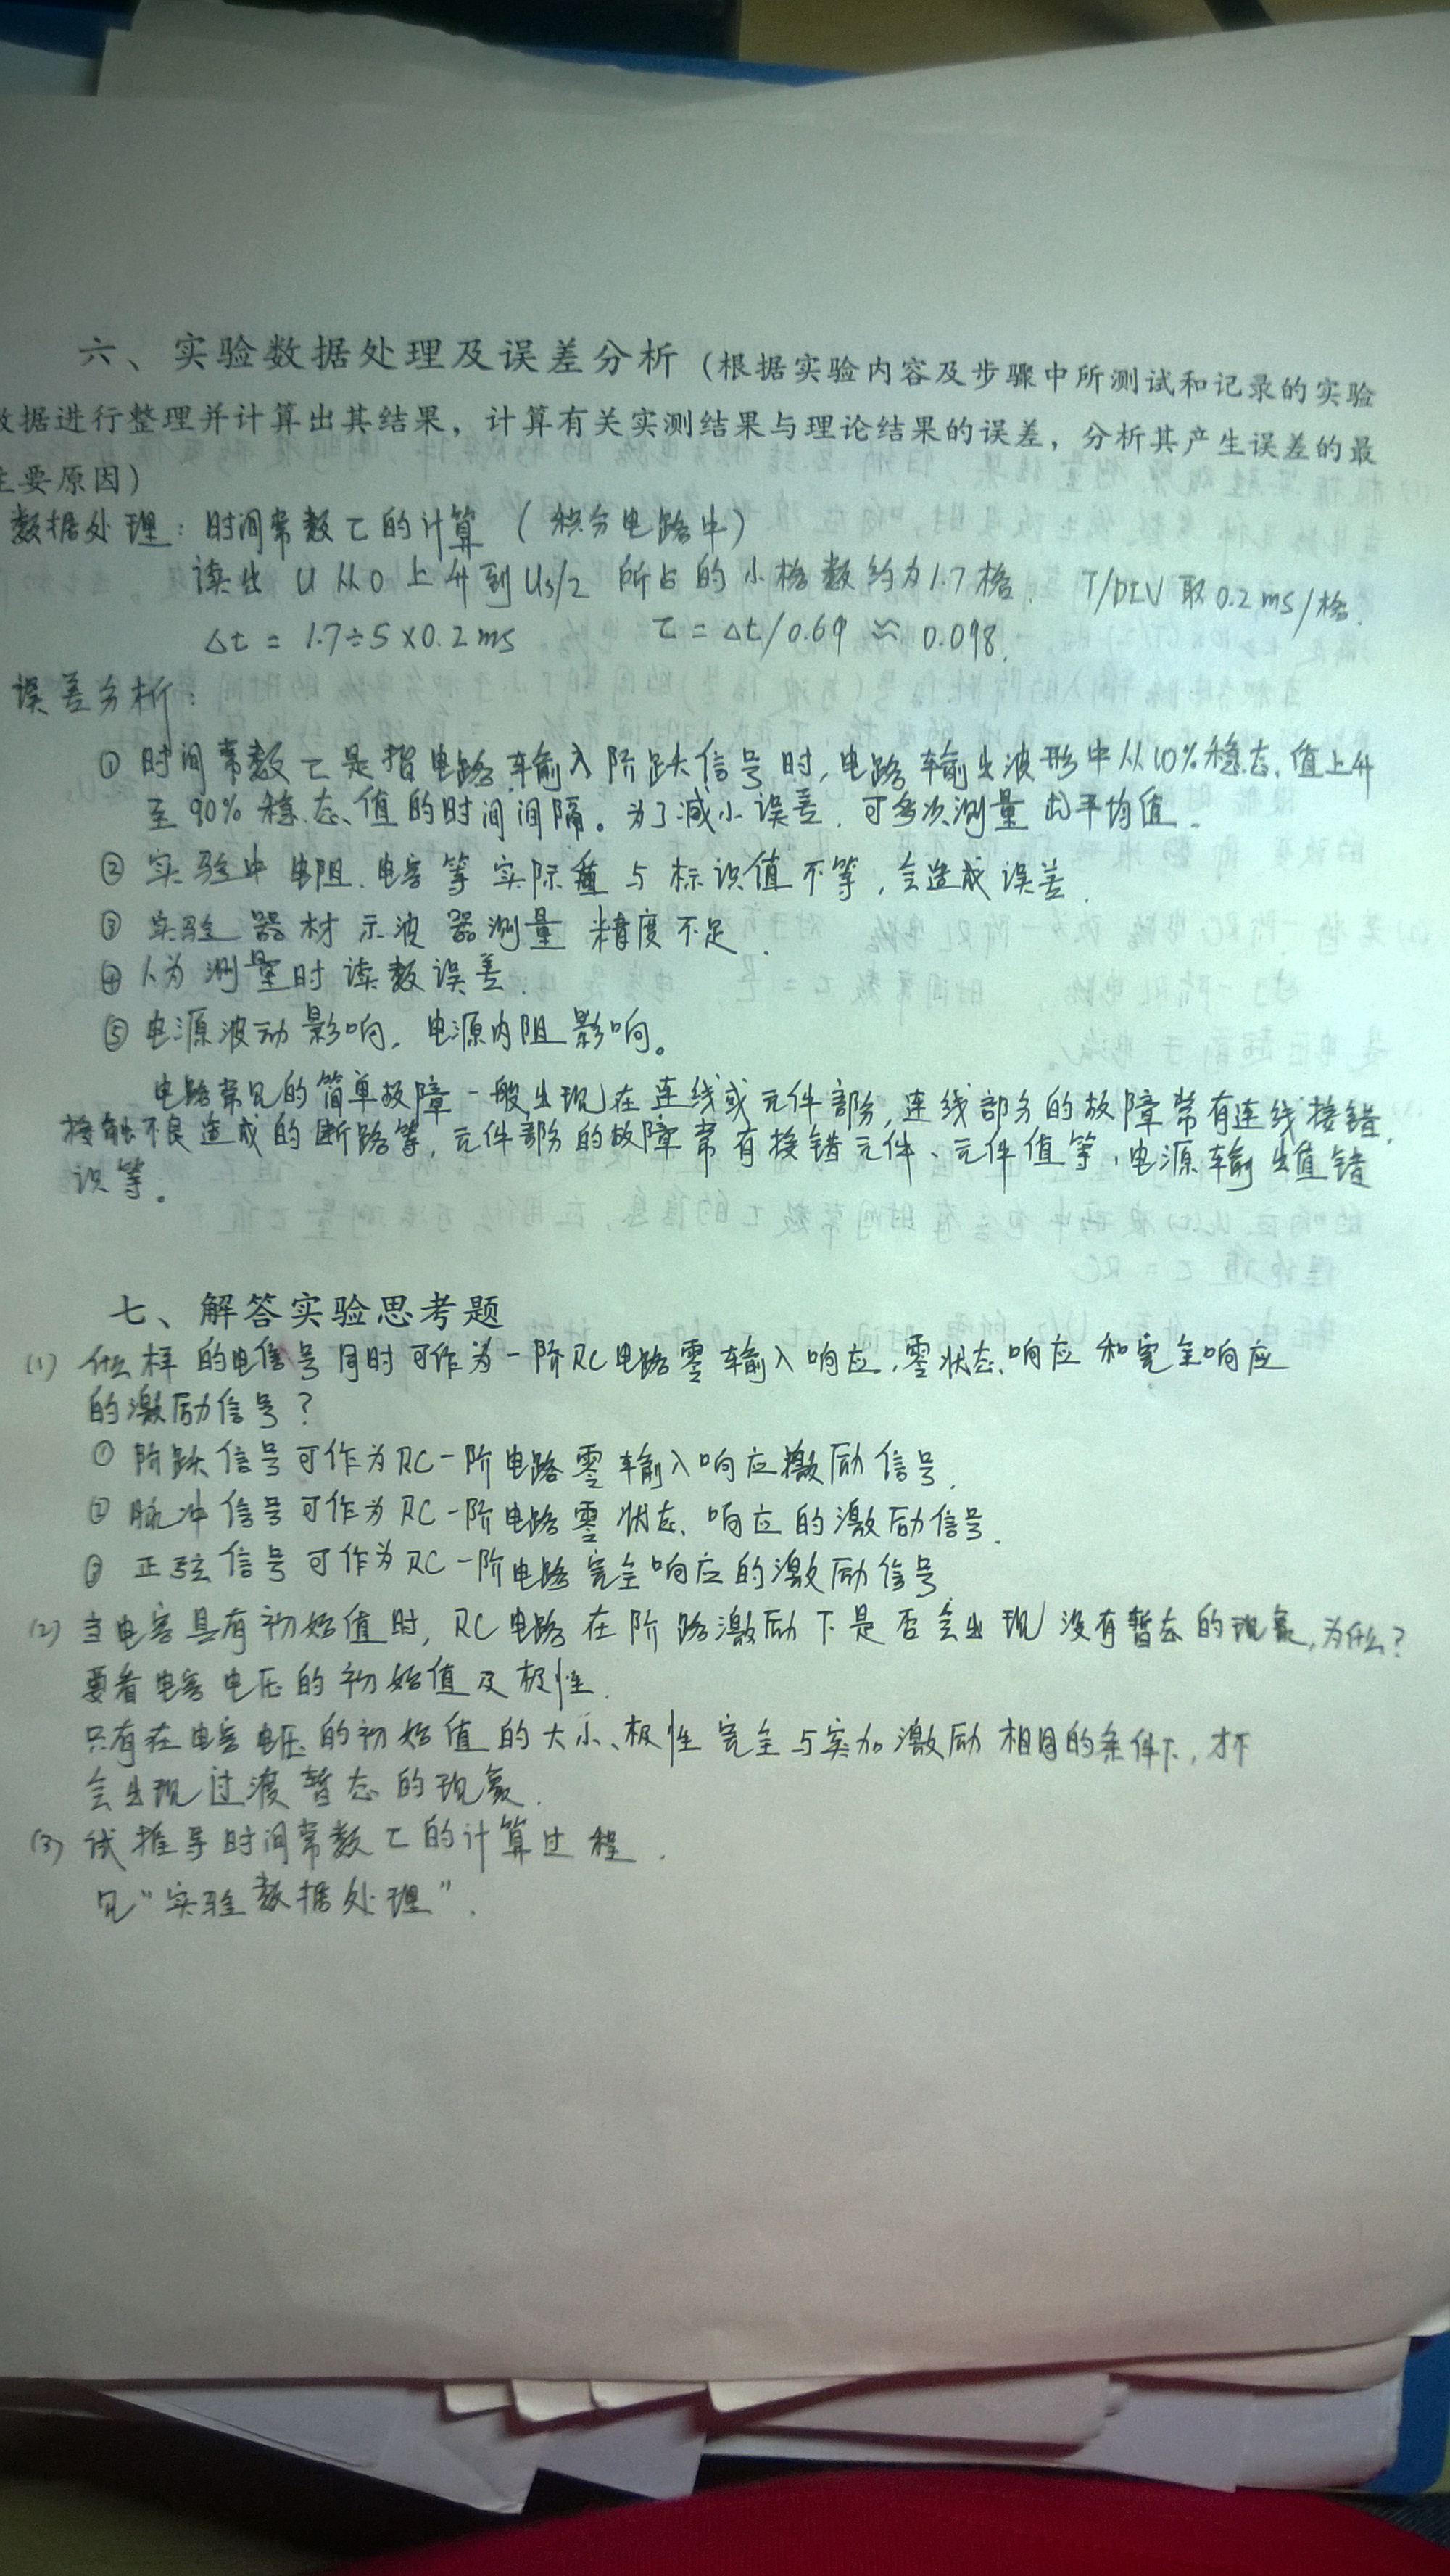 六、实验数据处理及误差分析（根据实验内容及步骤中所测试和记录的实验
数据进行整理并计算出其结果，计算有关实测结果与理论结果的误差，分析其产生误差的最
主要原因）
数据处理：时间常数τ的计算（积分电路中）
读出 U从0上升到Us/2 所占的小格数约为1.7格. T/DIV取0.2ms/格.
Δt = 1.7÷5×0.2ms τ=Δt/0.69≈0.098.
误差分析：
① 时间常数τ是指电路输入阶跃信号时，电路输出波形中从10%稳态值上升
至90%稳态值的时间间隔。为了减小误差，可多次测量 平均值.
② 实验中电阻、电容等实际值与标识值不等，会造成误差.
③ 实验器材示波器测量精度不足.
④ 人为测量时读数误差.
⑤ 电源波动影响，电源内阻影响。
电路常见的简单故障一般出现在连线或元件部分，连线部分的故障常有连线接错，
接触不良造成的断路等，元件部分的故障常有接错元件、元件值等，电源输出值错
误等。
七、解答实验思考题
(1) 什么样的电信号同时可作为一阶RC电路零输入响应，零状态响应和完全响应
的激励信号？
① 阶跃信号可作为RC一阶电路零输入响应激励信号.
② 脉冲信号可作为RC一阶电路零状态响应的激励信号.
③ 正弦信号可作为RC一阶电路完全响应的激励信号
(2) 当电容具有初始值时，RC电路在阶路激励下是否会出现没有暂态的现象，为什么？
要看电容电压的初始值及极性.
只有在电容电压的初始值的大小、极性完全与实加激励相同的条件下，才不
会出现过渡暂态的现象.
(3) 试推导时间常数τ的计算过程.
见“实验数据处理”.